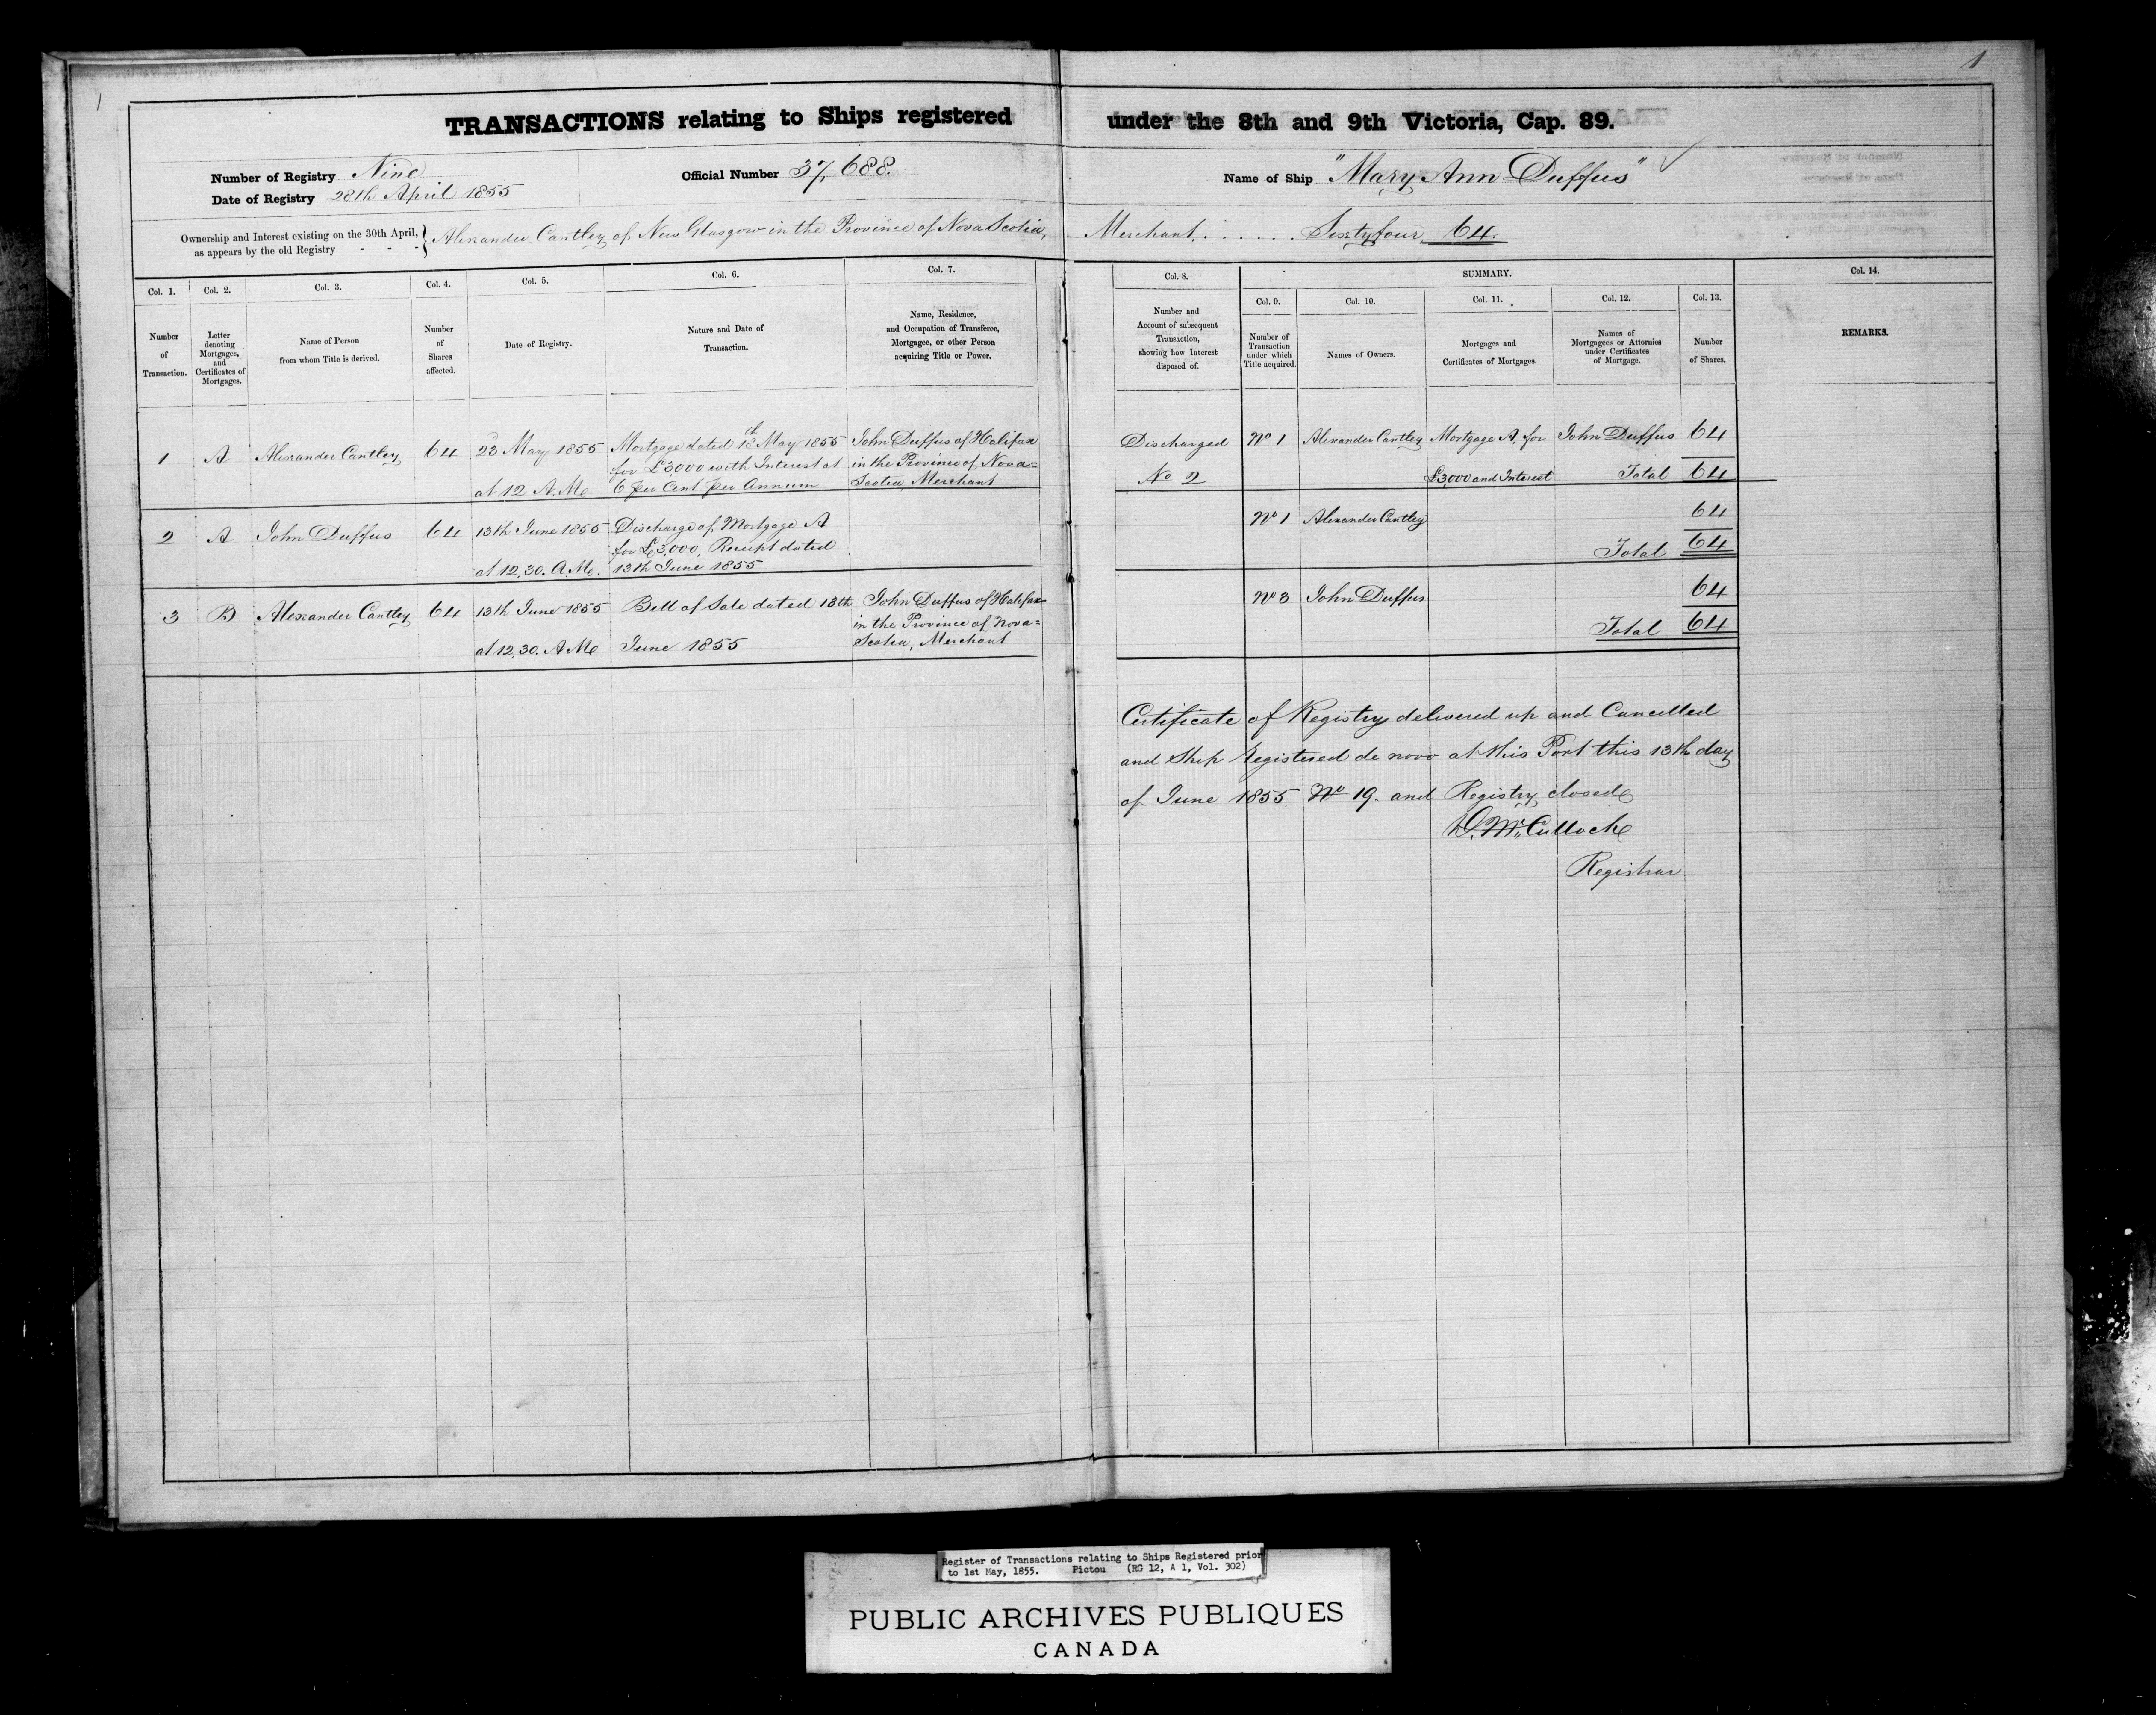 1
1
TRANSACTIONS relating to Ships registered under the 8th and 9th Victoria, Cap. 89.
Number of Registry Nine
Official Number 37,688.
Name of Ship "Mary Ann Duffus"
Date of Registry 28th April 1855
Ownership and Interest existing on the 30th April, as appears by the old Registry - - -
Alexander Cantley of New Glasgow in the Province of Nova Scotia, Merchant. . . . . . . Sixty four 64.
Col. 1.
Number
of
Transaction.
Col. 2.
Letter
denoting
Mortgages,
and
Certificates of
Mortgages.
Col. 3.
Name of Person
from whom Title is derived.
Col. 4.
Number
of
Shares
affected.
Col. 5.
Date of Registry.
Col. 6.
Nature and Date of
Transaction.
Col. 7.
Name, Residence,
and Occupation of Transferee,
Mortgagee, or other Person
acquiring Title or Power.
Col. 8.
Number and
Account of subsequent
Transaction,
showing how Interest
disposed of.
SUMMARY.
Col. 9.
Number of
Transaction
under which
Title acquired.
Col. 10.
Names of Owners.
Col. 11.
Mortgages and
Certificates of Mortgages.
Col. 12.
Names of
Mortgagees or Attornies
under Certificates
of Mortgage.
Col. 13.
Number
of Shares.
Col. 14.
REMARKS.
1 A Alexander Cantley 64
23d May 1855
at 12 A.M.
Mortgage dated 18th May 1855
for £3000 with Interest at
6 per Cent per Annum
John Duffus of Halifax
in the Province of Nova=
Scotia, Merchant
Discharged
No 2
No 1 Alexander Cantley Mortgage A. for John Duffus 64
£3,000 and Interest Total 64
2 A John Duffus 64
13th June 1855
at 12,30. A.M.
Discharge of Mortgage A
for £3,000, Receipt dated
13th June 1855
No 1 Alexander Cantley 64
Total 64
3 B Alexander Cantley 64
13th June 1855
at 12,30. A.M.
Bill of Sale dated 13th
June 1855
John Duffus of Halifax
in the Province of Nova=
Scotia, Merchant
No 3 John Duffus 64
Total 64
Certificate of Registry delivered up and Cancelled
and Ship registered de novo at this Port this 13th day
of June 1855 No 19. and Registry closed
D. McCulloch
Registrar
Register of Transactions relating to Ships Registered prior
to 1st May, 1855. Pictou (RG 12, A 1, Vol. 302)
PUBLIC ARCHIVES PUBLIQUES
CANADA